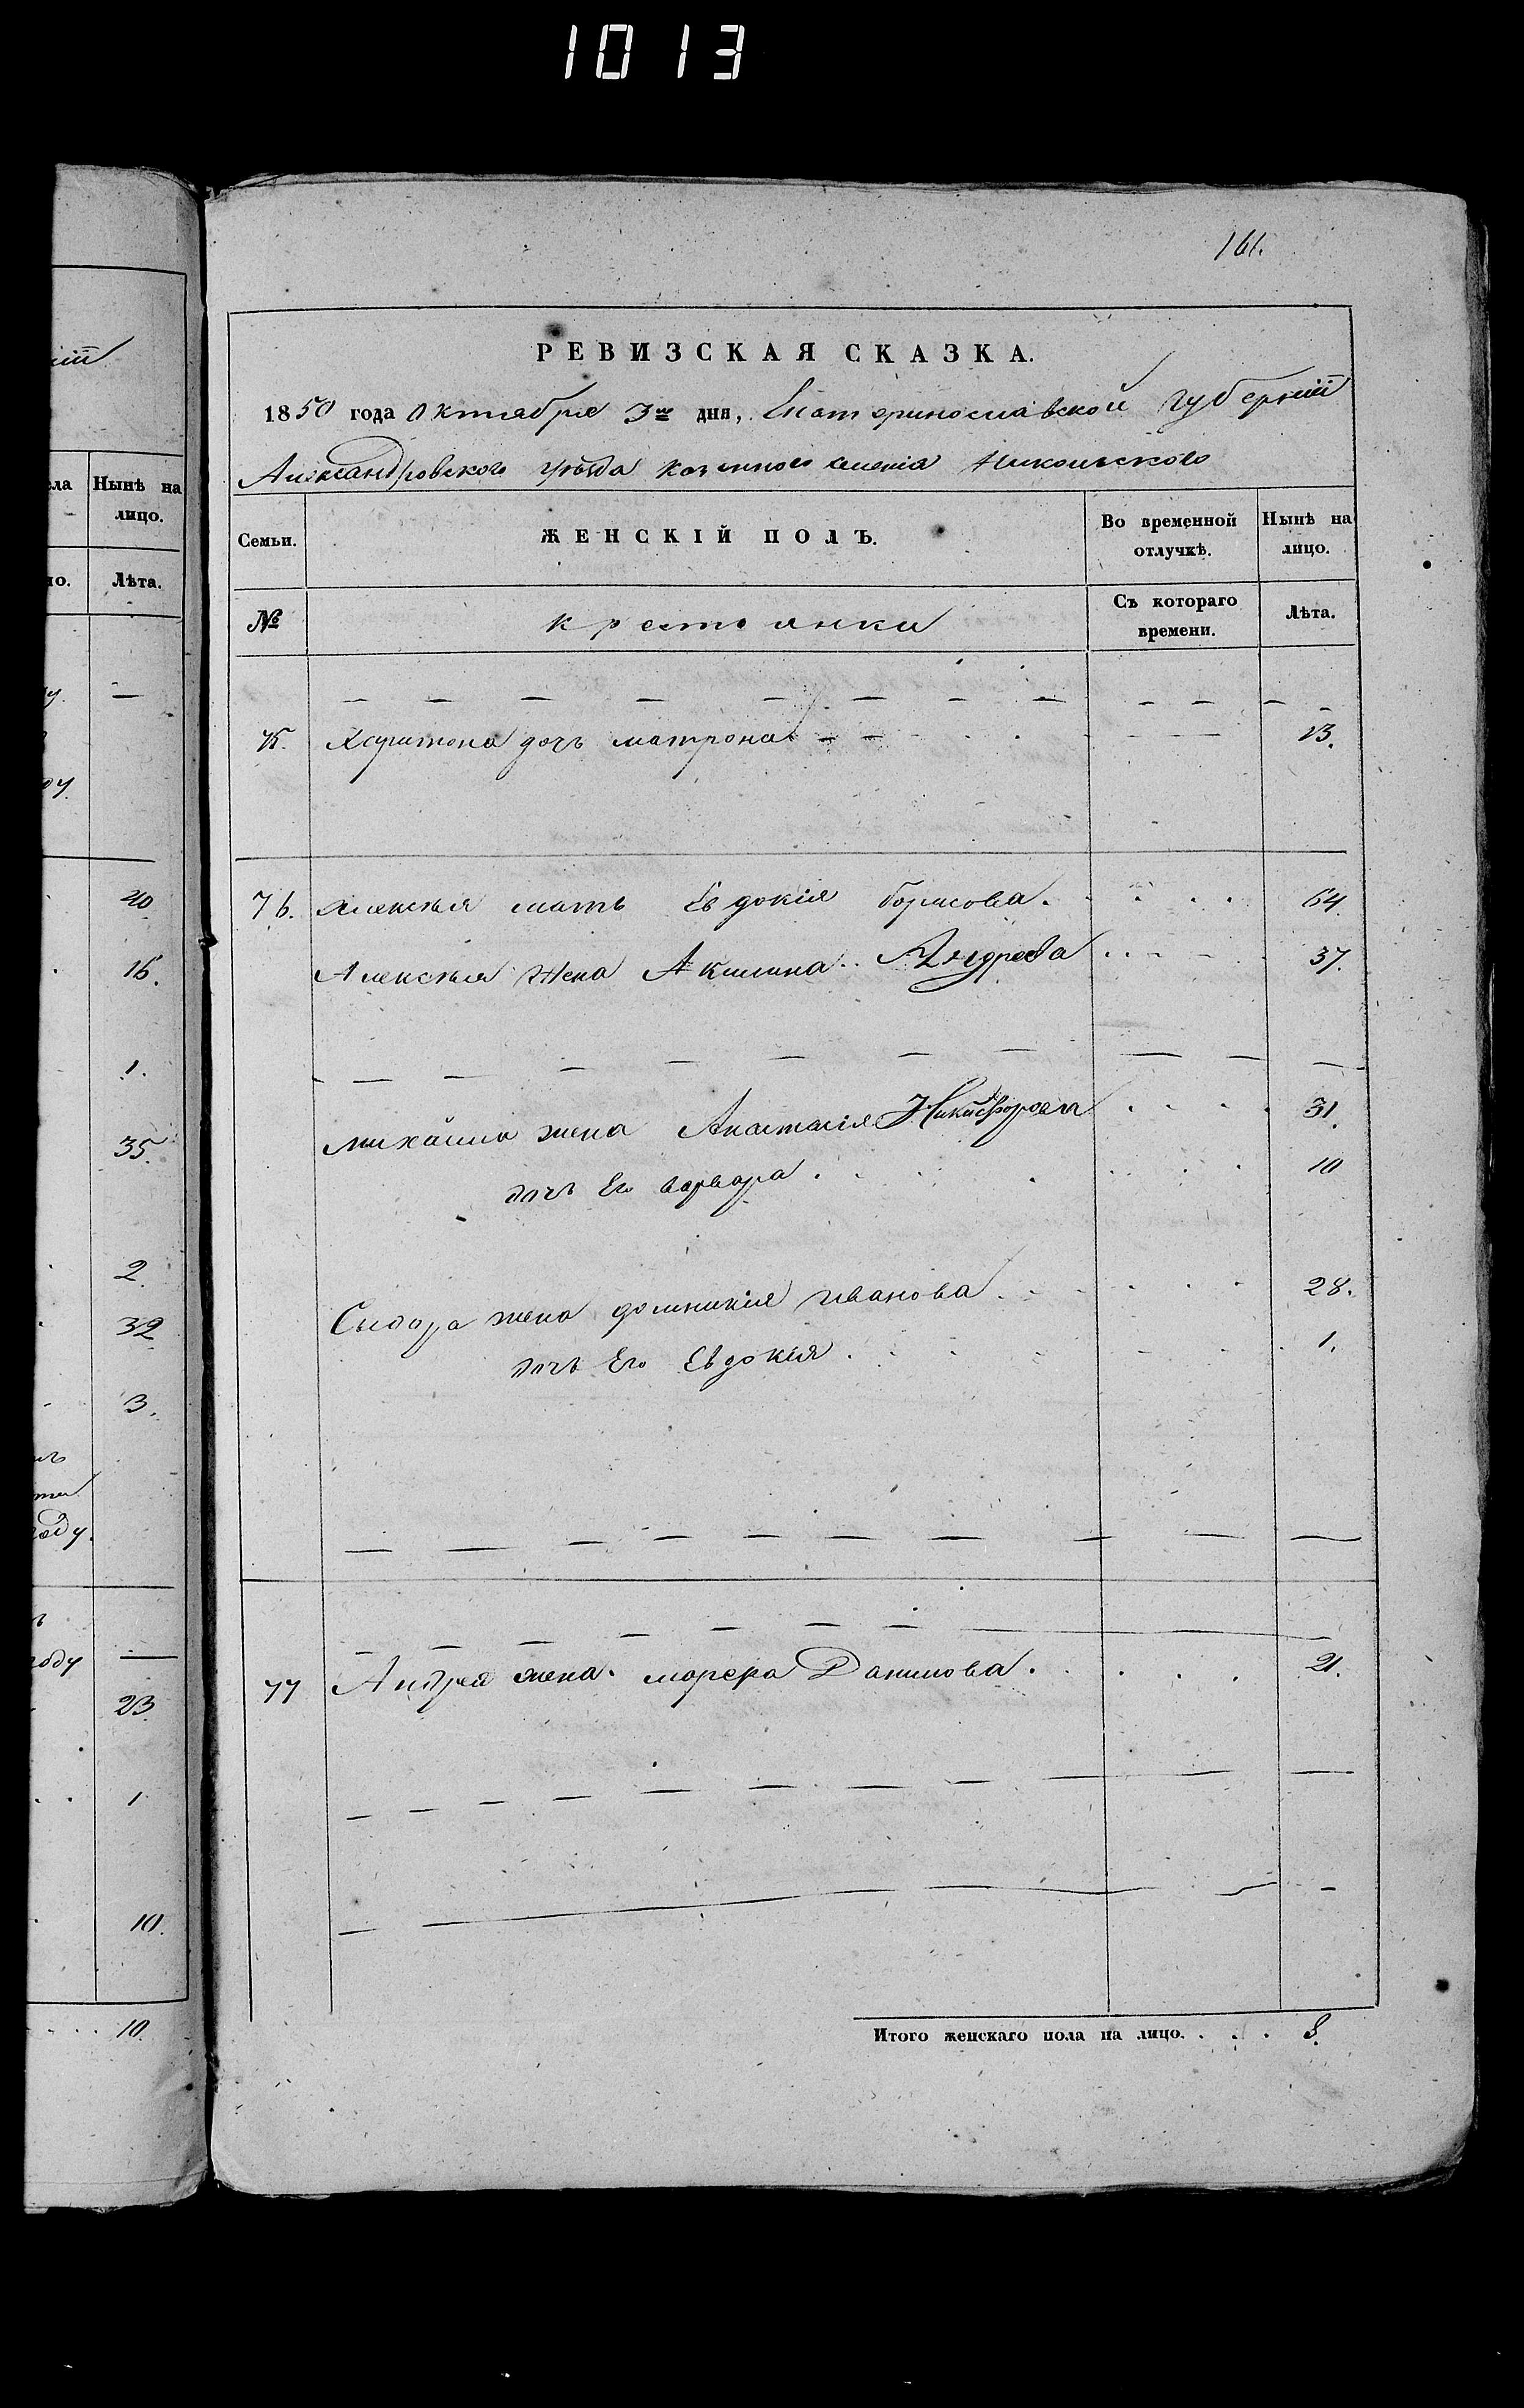 1013
161.
РЕВИЗСКАЯ СКАЗКА.
1850 года Октября 3го дня, Екатеринославской Губернiи
Александровского уѣзда казенного селенiя Никольского
Семьи.
ЖЕНСКIЙ ПОЛЪ.
Во временной отлучкѣ.
Нынѣ на лицо.
№
крестьянки
Съ котораго времени.
Лѣта.
75. Харитона дочь матрона 13.
76. Алексѣя мать Евдокiя борисова. 64.
Алексѣя жена Акилина Андреева 37.
михайла жена Анастасiя Никифорова 31.
дочь Его варвара 10
Сидора жена домникiя иванова 28.
дочь Его Евдокiя 1.
77 Андрея жена марфа Данилова. 21.
Итого женскаго пола на лицо. 8.
Нынѣ на
лицо.
Лѣта.
40.
16.
1.
35.
2.
32
3.
году.
году
23.
1
10.
10.